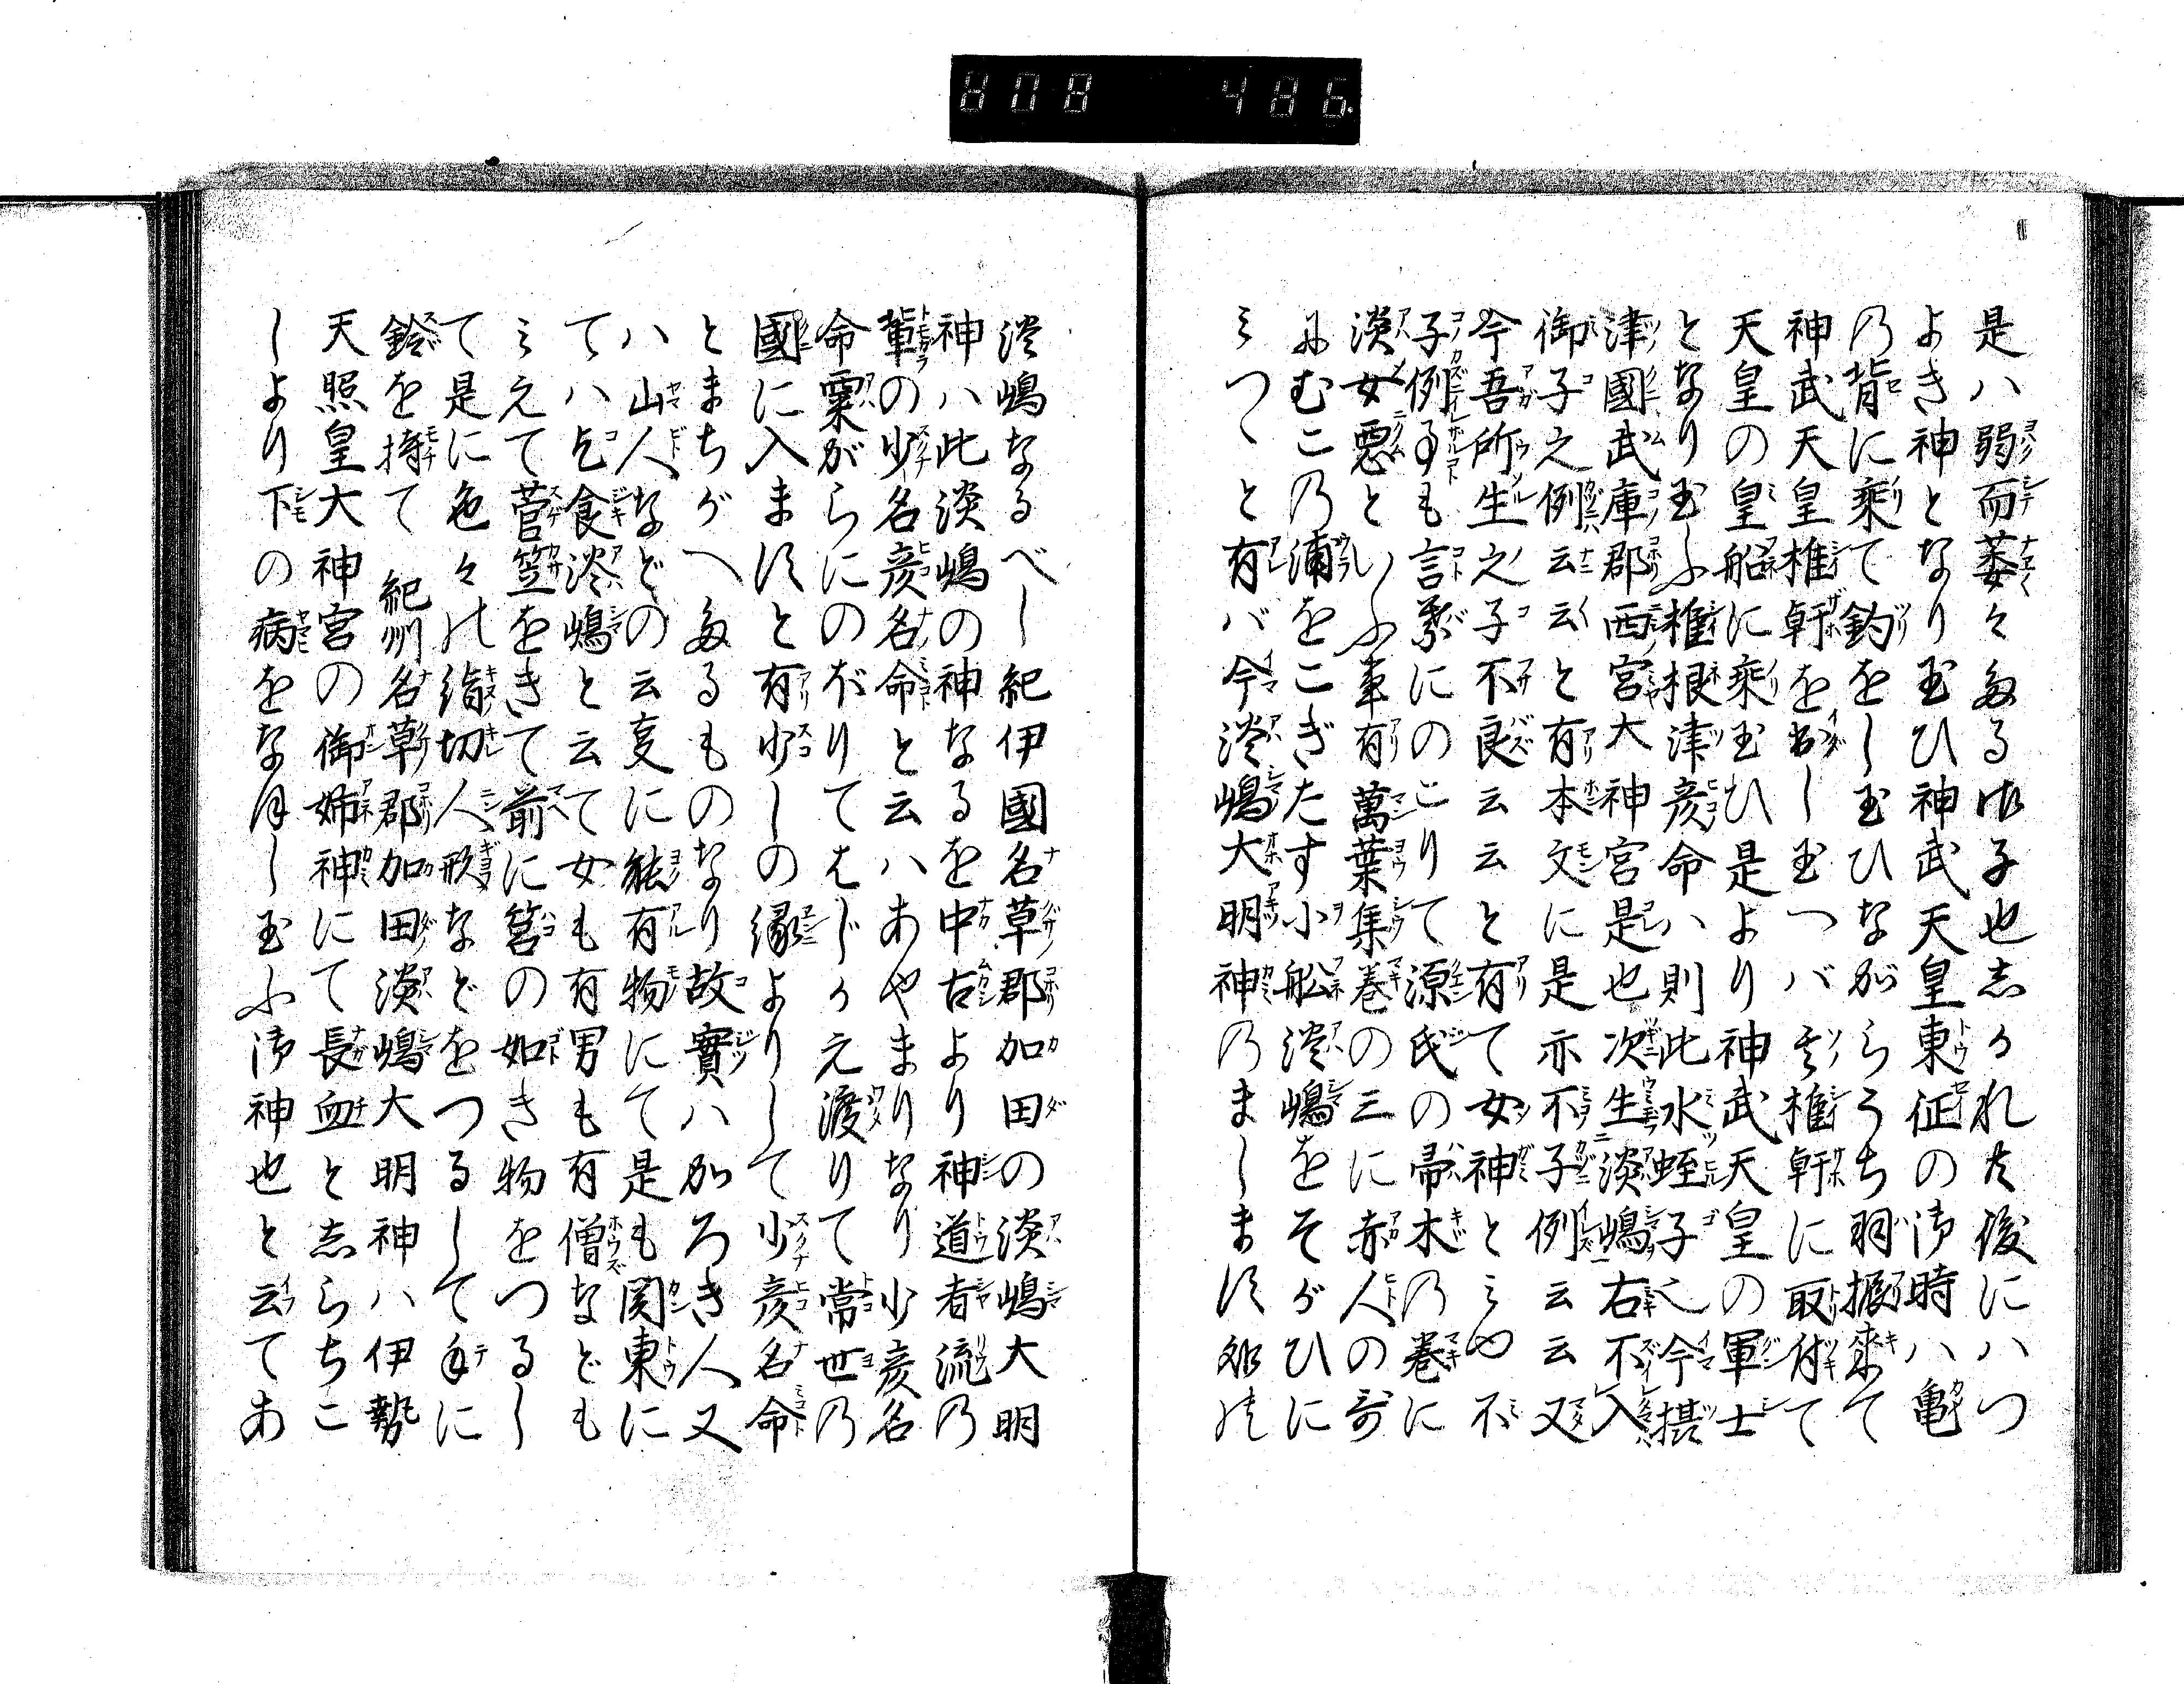 808 486.
是ハ弱而萎々たる御子也志かれ共後にハつ
よき神となり玉ひ神武天皇東征の御時ハ亀
の背に乗て釣をし玉ひながらうち羽振来て
神武天皇椎䒳を出し玉つバ其椎䒳に取付て
天皇の皇船に乗玉ひ是より神武天皇の軍士
となり玉ふ椎根津彦命ハ則此水蛭子也今摂
津國武庫郡西宮大神宮是也次生淡嶋右不入
御子之例云云と有本文に是亦不子例云云又
今吾所生之子不良云云と有て女神とミゆ不
子例るも言葉にのこりて源氏の帚木の巻に
淡女悪といふ事有萬葉集巻の三に赤人の哥
にむこの浦をこぎたす小船淡嶋をそがひに
ミつゝと有バ今淡嶋大明神のまします所の
淡嶋なるべし紀伊國名草郡加田の淡嶋大明
神ハ此淡嶋の神なるを中古より神道者流の
輩の少名彦名命と云ハあやまりなり少彦名
命粟がらにのぼりてはじかえ渡りて常世の
國に入ますと有少しの縁よりして少彦名命
とまちがへたるものなり故實ハかろき人又
ハ山人などの云支に能有物にて是も関東に
てハ乞食淡嶋と云て女も有男も有僧なども
ミえて菅笠をきて前に筥の如き物をつるし
て是に色々の絹切人形などをつるして手に
鈴を持て 紀州名草郡加田淡嶋大明神ハ伊勢
天照皇大神宮の御姉神にて長血と志らちこ
しより下の病をなほし玉ふ御神也と云てあ